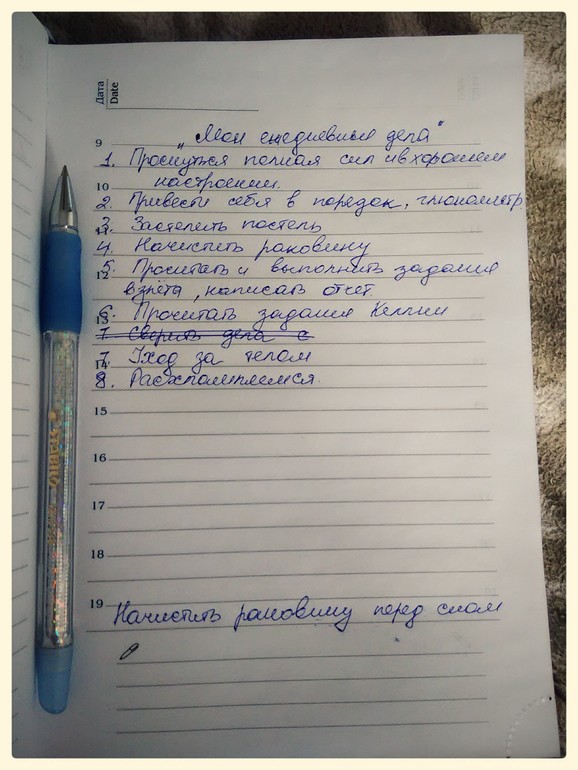 Дата
Date
9 „Мои ежедневные дела"
1. Проснуться полная сил и в хорошем
10 настроении.
2. Привести себя в порядок, глюкометр.
11 3. Застелить постель
4. Начистить раковину
12 5. Прочитать и выполнить задания
взлёта, написать отчет.
13 6. Прочитать задания Келли
7. Сверить дела с
14 7. Уход за телом
8. Расхламляемся.
15
16
17
18
19 Начистить раковину перед сном